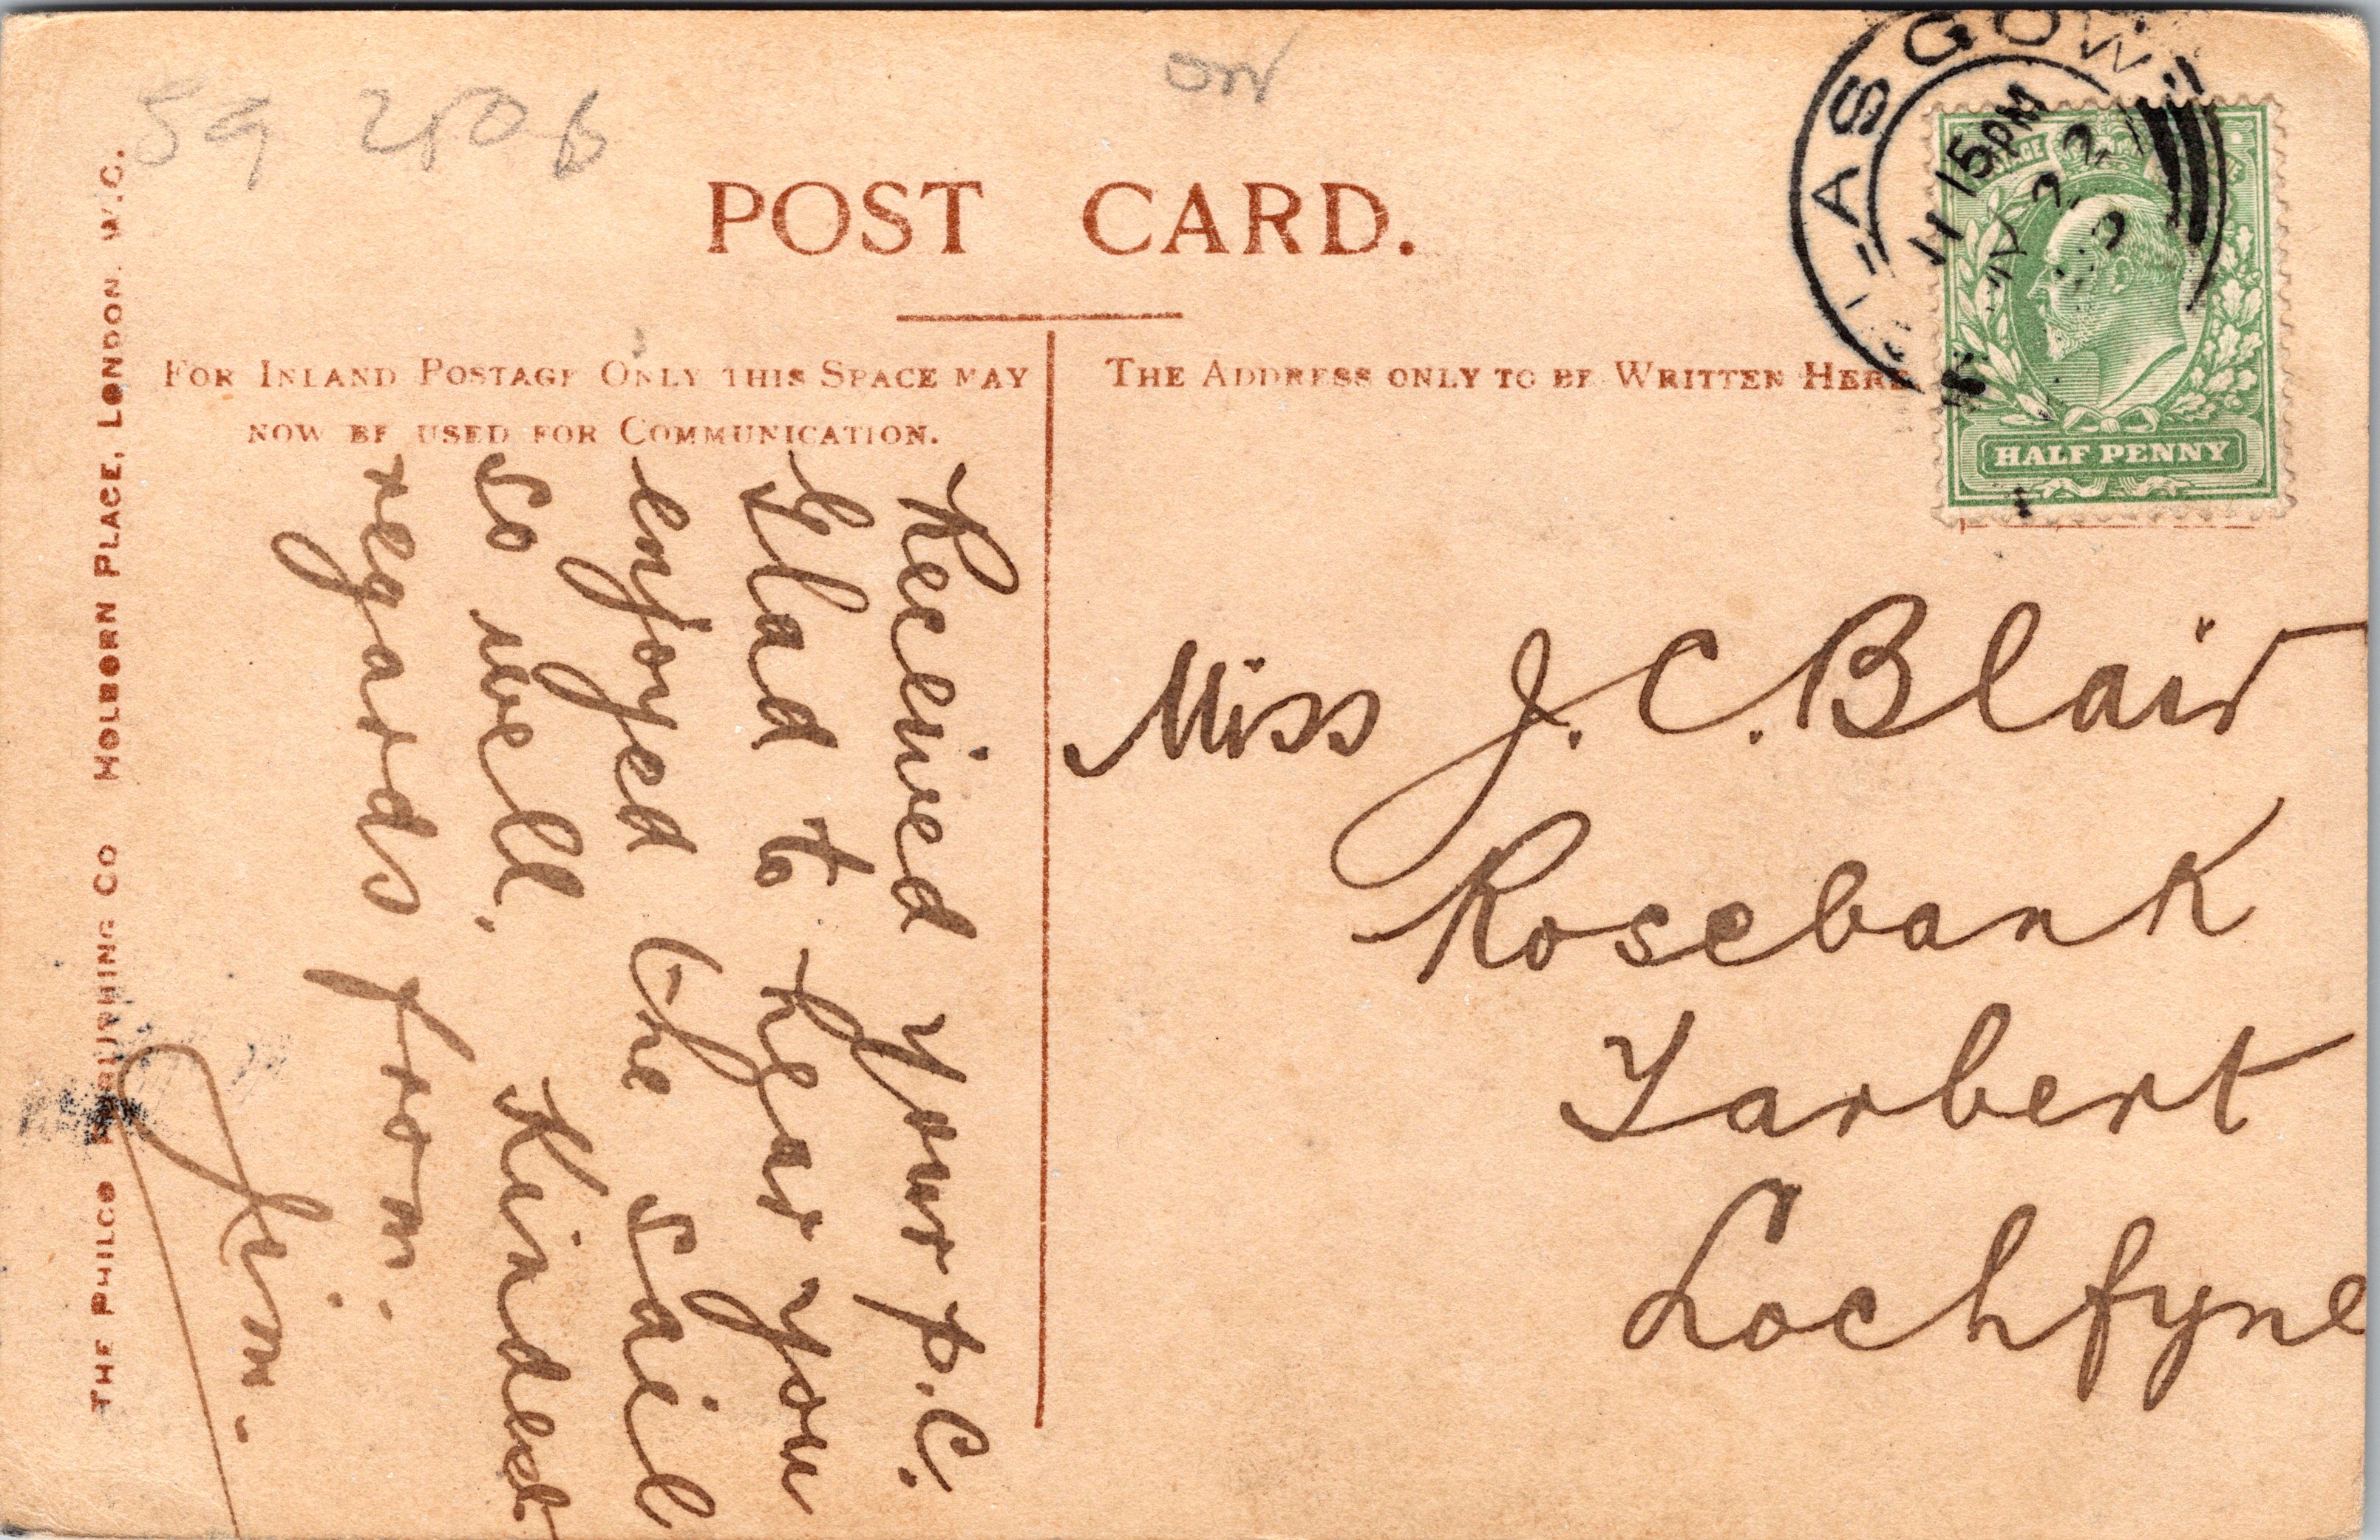 POST CARD.
FOR INLAND POSTAGE ONLY THIS SPACE MAY
NOW BE USED FOR COMMUNICATION.
THE ADDRESS ONLY TO BE WRITTEN HERE
GLASGOW
11 15 PM
HALF PENNY
Received your p.c.
Glad to hear you
enjoyed the sail
so well. Kindest
regards from.
Jim.
Miss J. C. Blair
Rosebank
Tarbert
Lochfyne
THE PHILCO PUBLISHING CO HOLBORN PLACE, LONDON. W.C.